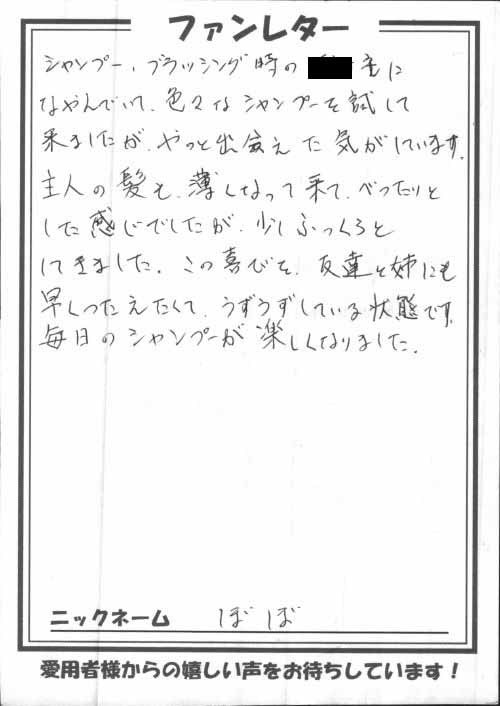 ファンレター
シャンプー、ブラッシング時の に
なやんでいて、色々なシャンプーを試して
来ましたが、やっと出会えた気がしています。
主人の髪も、薄くなって来て、べったりと
した感じでしたが、少しふっくらと
してきました。この喜びを、友達と姉にも
早くつたえたくて、うずうずしている状態です。
毎日のシャンプーが楽しくなりました。
ニックネーム ぼぼ
愛用者様からの嬉しい声をお待ちしています!